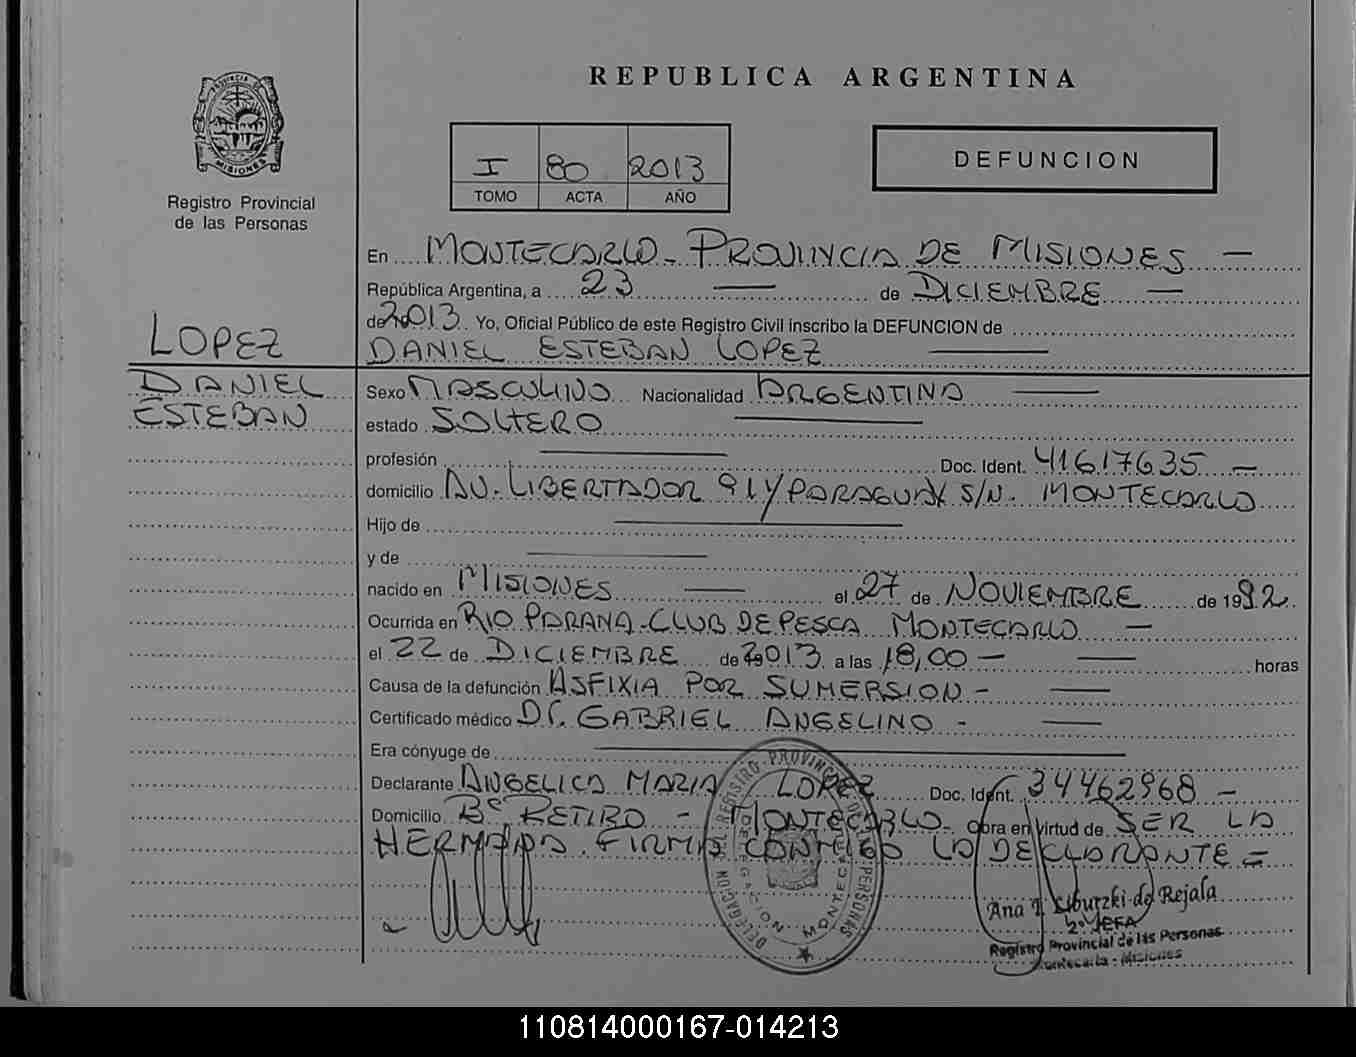 PROVINCIA DE
MISIONES
Registro Provincial
de las Personas
REPUBLICA ARGENTINA
I 80 2013
TOMO ACTA AÑO
DEFUNCION
En MONTECARLO - PROVINCIA DE MISIONES —
República Argentina, a 23 — de DICIEMBRE —
de 2013. Yo, Oficial Público de este Registro Civil inscribo la DEFUNCION de
DANIEL ESTEBAN LOPEZ —
LOPEZ
DANIEL
ESTEBAN
Sexo MASCULINO Nacionalidad ARGENTINA —
estado SOLTERO —
profesión — Doc. Ident. 41617635 —
domicilio AV. LIBERTADOR 91 Y PARAGUAY S/N. MONTECARLO
Hijo de —
y de —
nacido en MISIONES — el 27 de NOVIEMBRE de 1992.
Ocurrida en RIO PARANA - CLUB DE PESCA MONTECARLO —
el 22 de DICIEMBRE de 2013 a las 18,00 — — horas
Causa de la defunción ASFIXIA POR SUMERSION - —
Certificado médico Dr. GABRIEL ANGELINO - —
Era cónyuge de —
Declarante ANGELICA MARIA LOPEZ Doc. Ident. 34462968 —
Domicilio Bº RETIRO - MONTECARLO - Obra en virtud de SER LA
HERMANA FIRMA CONMIGO LA DECLARANTE =
DELEGACION DEL REGISTRO PROVINCIAL DE LAS PERSONAS
DELEGACION MONTECARLO
Ana de Rejala
2º JEFA
Registro Provincial de las Personas
Montecarlo - Misiones
110814000167-014213